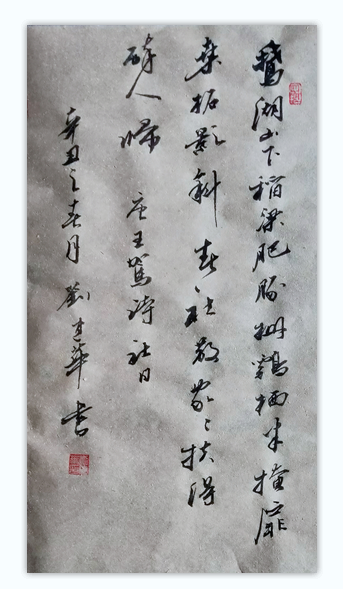 鵞湖山下稻粱肥豚栅鷄栖半掩扉
桑柘影斜春社散家々扶得
醉人帰 唐王駕詩社日
辛丑之春月 劉華书